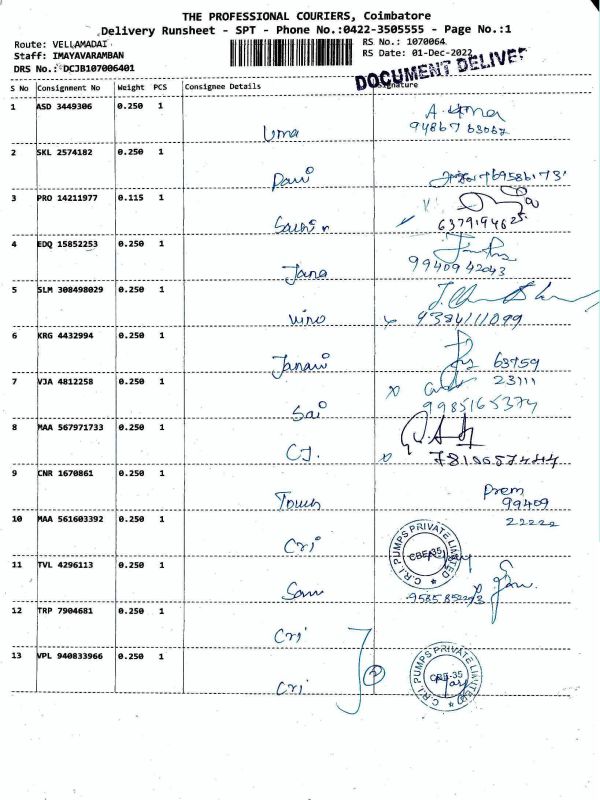 THE PROFESSIONAL COURIERS, Coimbatore
Delivery Runsheet - SPT - Phone No.:0422-3505555 - Page No.:1
Route: VELLAMADAI RS No.: 1070064
Staff: IMAYAVARAMBAN RS Date: 01-Dec-2022
DRS No.: DCJB107006401 DOCUMENT DELIVER
S No Consignment No Weight PCS Consignee Details Signature
1 ASD 3449306 0.250 1 Uma A. Uma
94867 63067
2 SKL 2574182 0.250 1
3 PRO 14211977 0.115 1
4 EDQ 15852253 0.250 1 Jana
99409 42043
5 SLM 308498029 0.250 1 Vino
6 KRG 4432994 0.250 1 Janani
63759
23111
7 VJA 4812258 0.250 1 Sai
9985165374
8 MAA 567971733 0.250 1 C.J.
9 CNR 1670861 0.250 1 Prem
99409
22222
10 MAA 561603392 0.250 1 Cri C.R.I. PUMPS PRIVATE LIMITED CBE-35
11 TVL 4296113 0.250 1 Sam
12 TRP 7904681 0.250 1 Cri
13 VPL 940833966 0.250 1 Cri 2 C.R.I. PUMPS PRIVATE LIMITED CBE-35